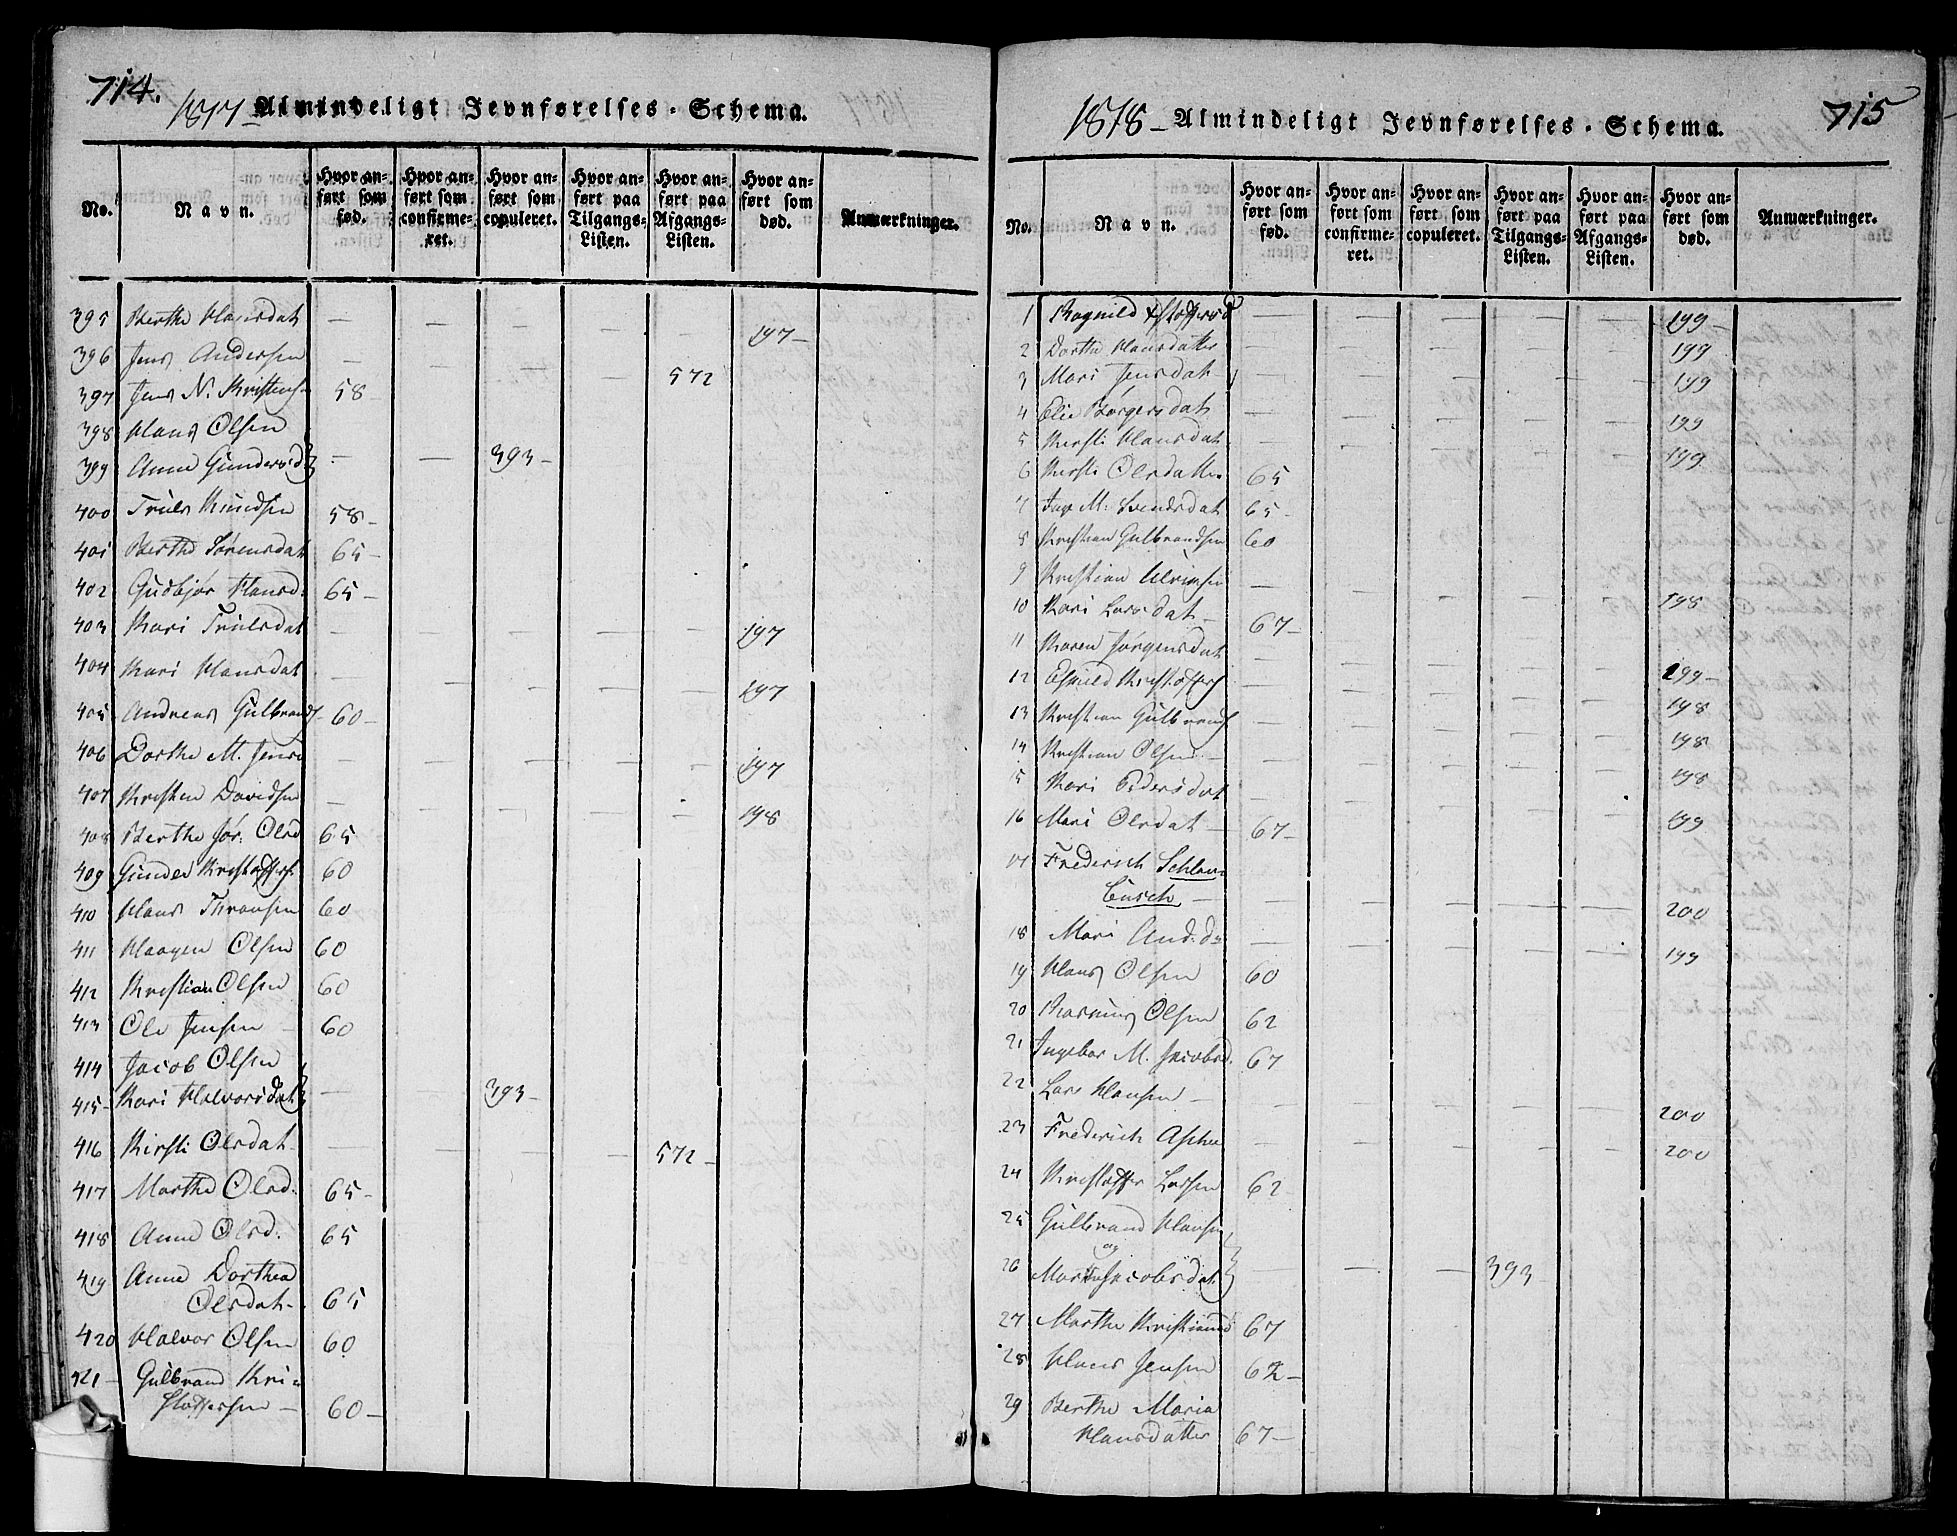 714.
1817 - Almindeligt Jevnførelses-Schema.
No. Navn. Hvor anført som fød. Hvor anført som confirmeret. Hvor anført som copuleret. Hvor anført paa Tilgangs-Listen. Hvor anført paa Afgangs-Listen. Hvor anført som død. Anmærkninger.
395 Berthe Hansdat — — — — — 197 —
396 Jens Andersen — — — — 572
397 Jens N. Kristens 58 —
398 Hans Olsen
399 Anne Gundersd — — 393 —
400 Truls Knudsen 58 —
401 Berthe Sørensdat 65 —
402 Gudbjør Hansd. 65 —
403 Kari Trulsdat — — — — — 197
404 Kari Hansdat — — — — — 197
405 Andreas Gulbrands 60 —
406 Dorthe M. Jensd — — — — — 197
407 Kristen Davidsen — — — — — 198
408 Berthe Jør. Olsd 65
409 Gunder Kristoffers 60
410 Hans Thronsen 60
411 Haagen Olsen 60
412 Kristian Olsen 60
413 Ole Jensen — 60
414 Jacob Olsen
415 Kari Halvorsdat — — 393 —
416 Kirsti Olsdat — — — — 572 —
417 Marthe Olsd. 65 —
418 Anne Olsd. 65
419 Anne Dorthea
Olsdat — 65
420 Halvor Olsen 60
421 — Gulbrand Kri=
stoffersen — 60 —
715
1818 - Almindeligt Jevnførelses-Schema.
No. Navn. Hvor anført som fød. Hvor anført som confirmeret. Hvor anført som copuleret. Hvor anført paa Tilgangs-Listen. Hvor anført paa Afgangs-Listen. Hvor anført som død. Anmærkninger.
1 Ragnild — — — — — 199 —
2 Dorthe Hansdatter — — — — — 199
3 Mari Jensdat — — — — — 199
4 Elie Børgersdat — — — — — 199
5 Kersti Hansdat — — — — — 199
6 Kersti Olsdatter 65
7 Inge M. Svendsdat 65 —
8 Kristian Gulbrandsen 60
9 Kristian Ulrichsen — — — — — 198
10 Kari Larsdat — 67 —
11 Karen Jørgensdat — — — — — 199 —
12 Kristoffers — — — — — 198
13 Kristian Gulbrands — — — — — 198
14 Kristian Olsen — — — — — 198
15 Kari Pedersdat — — — — — 199
16 Mari Olsdat — 67 —
17 Frederich
Busch — — — — — — 200
18 Mari And.d. — — — — — 199
19 Hans Olsen 60
20 Rasmus Olsen 62
21 Ingebor M. Jacobsd. 67
22 Lars Hansen — — — — — 200
23 Frederich — — — — — 200
24 Kristoffer Larsen 62
25 Gulbrand Hansen
og
26 Marthe Jacobsdat — — — 393 —
27 Marthe Kristiansd 67
28 Hans Jensen 62 —
29 Berthe Maria
Hansdatter 67 —